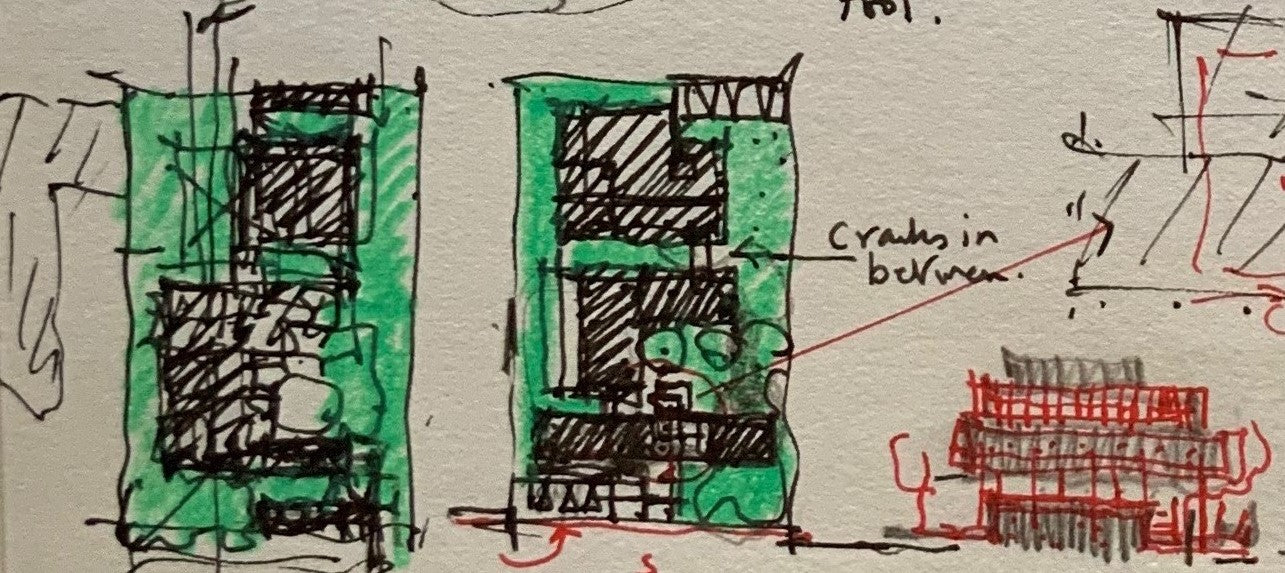 Cracks in
between.
d.
S